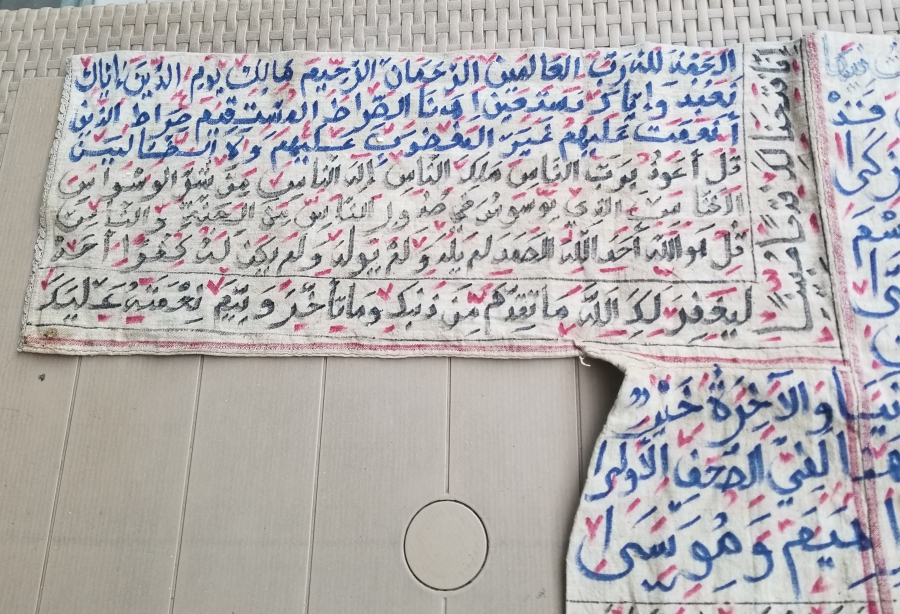 الحمد لله رب العالمين الرحمان الرحيم مالك يوم الدين إياك
نعبد وإياك نستعين اهدنا الصراط المستقيم صراط الذين
أنعمت عليهم غير المغضوب عليهم ولا الضالين
قل أعوذ برب الناس ملك الناس إله الناس من شر الوسواس
الخناس الذي يوسوس في صدور الناس من الجنة والناس
قل هو الله أحد الله الصمد لم يلد ولم يولد ولم يكن له كفوا أحد
ليغفر لك الله ما تقدم من ذنبك وما تأخر ويتم نعمته عليك
إنا فتحنا لك فتحا مبينا
والآخرة خير
لفي الصحف الأولى
هيم وموسى